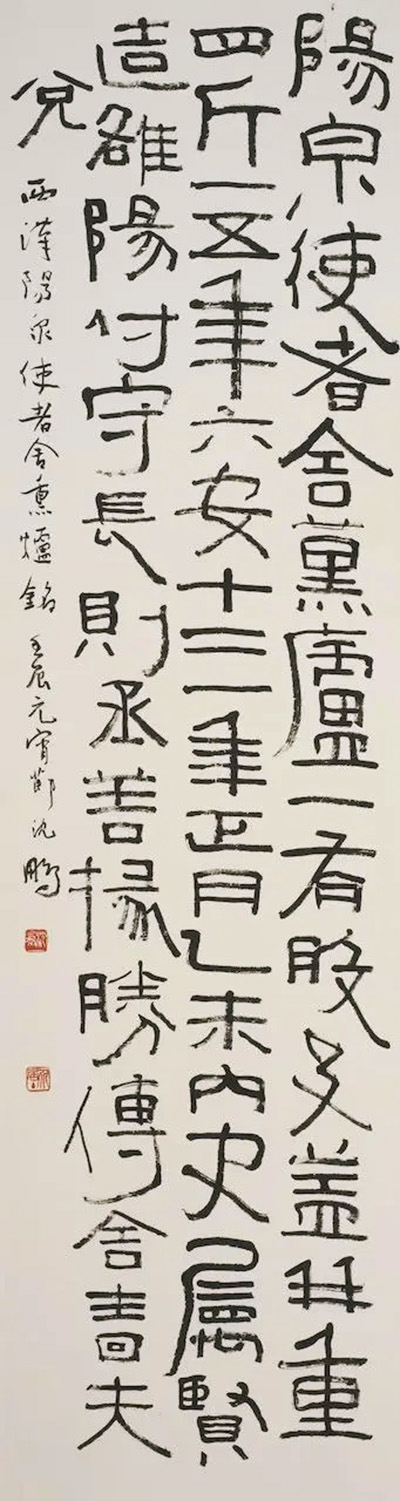 陽泉使者舍薰廬一有般及蓋并重
四斤一五年六安十三年正月乙未內史屬賢
造雒陽付守長則丞善掾勝傳舍嗇夫
兌
西漢陽泉使者舍熏爐銘 壬辰元宵節沈鵬